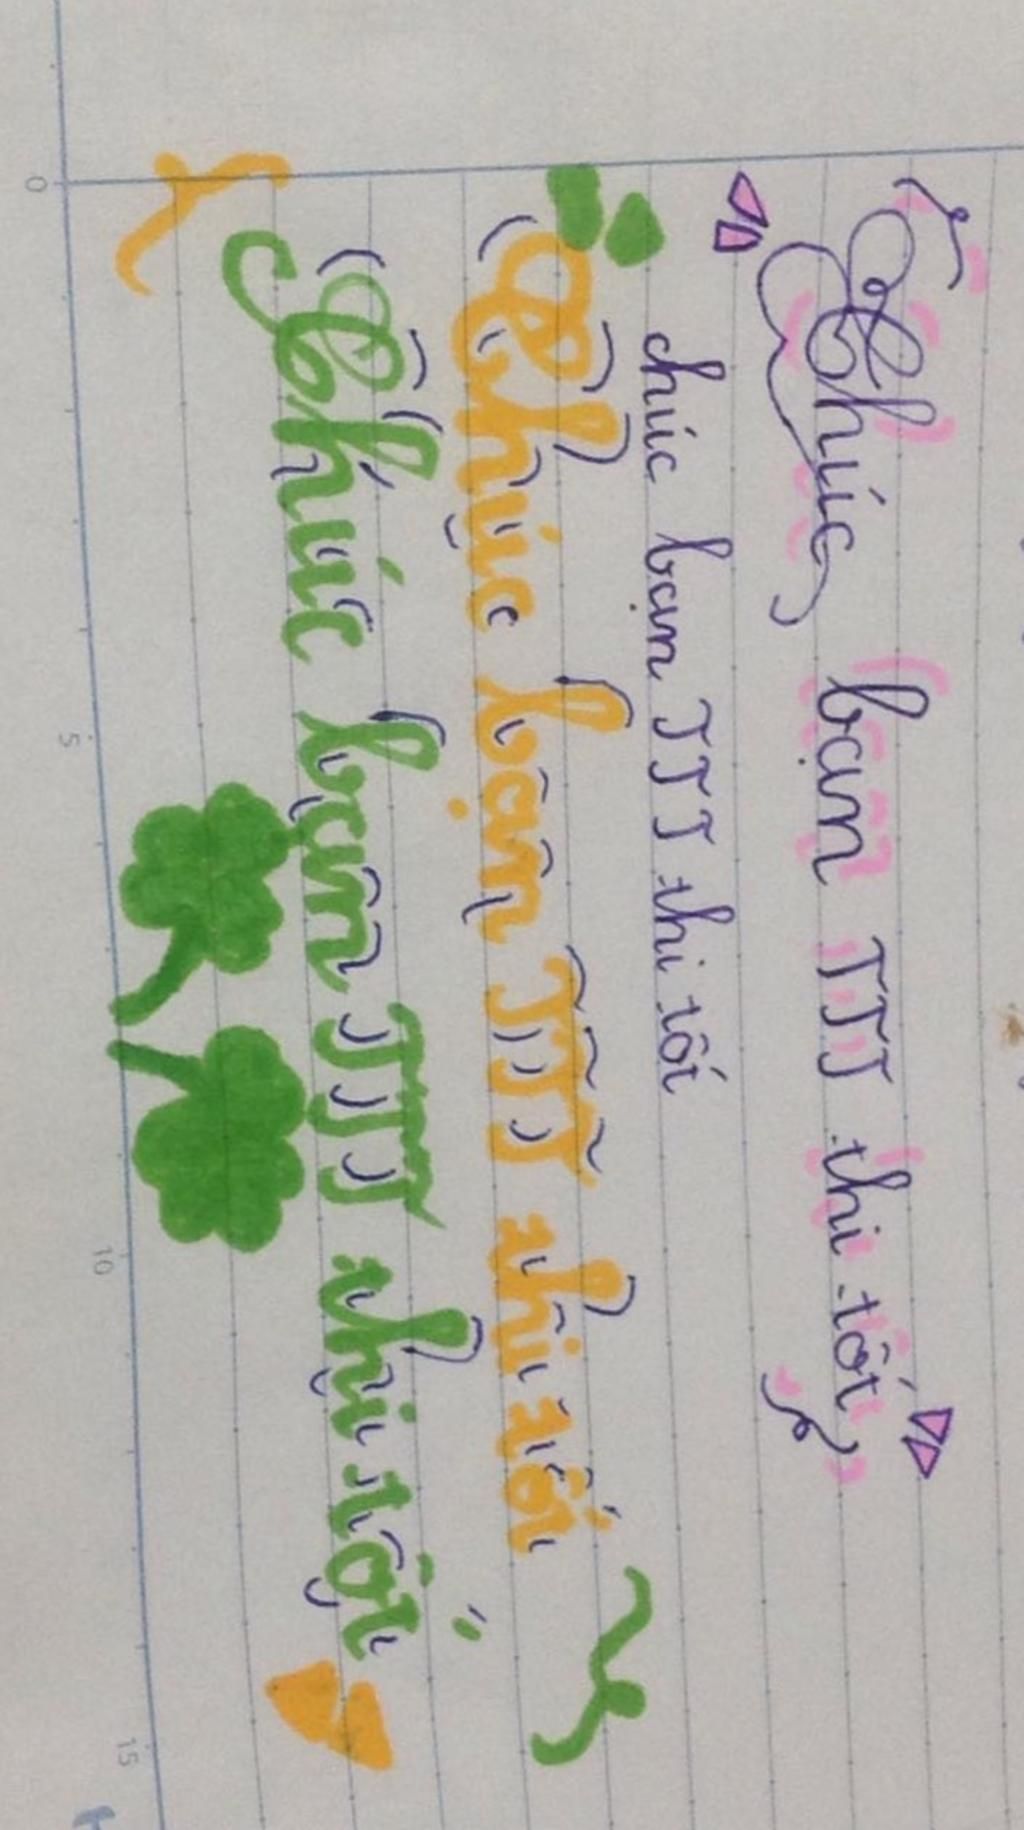 Chúc bạn TTT thi tốt
chúc bạn TTT thi tốt
Chúc bạn TTT thi tốt
Chúc bạn TTT thi tốt
0 5 10 15